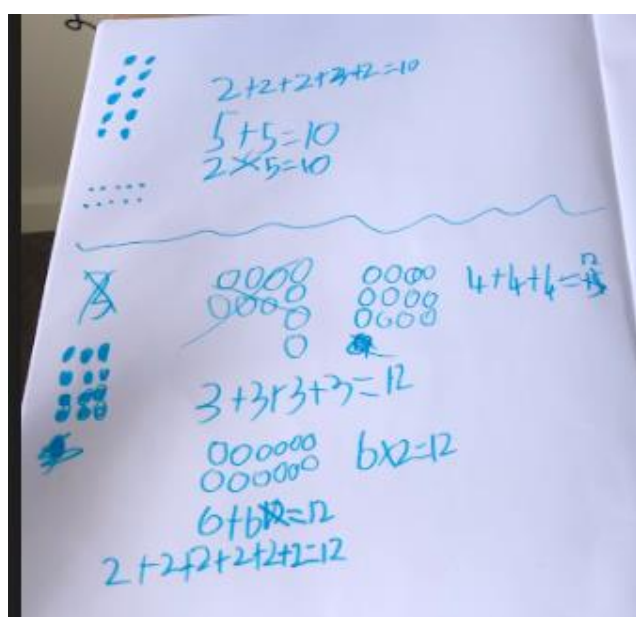 2+2+2+2+2=10
5+5=10
2×5=10
4+4+4=12
3+3+3+3=12
6×2=12
6+6=12
2+2+2+2+2+2=12